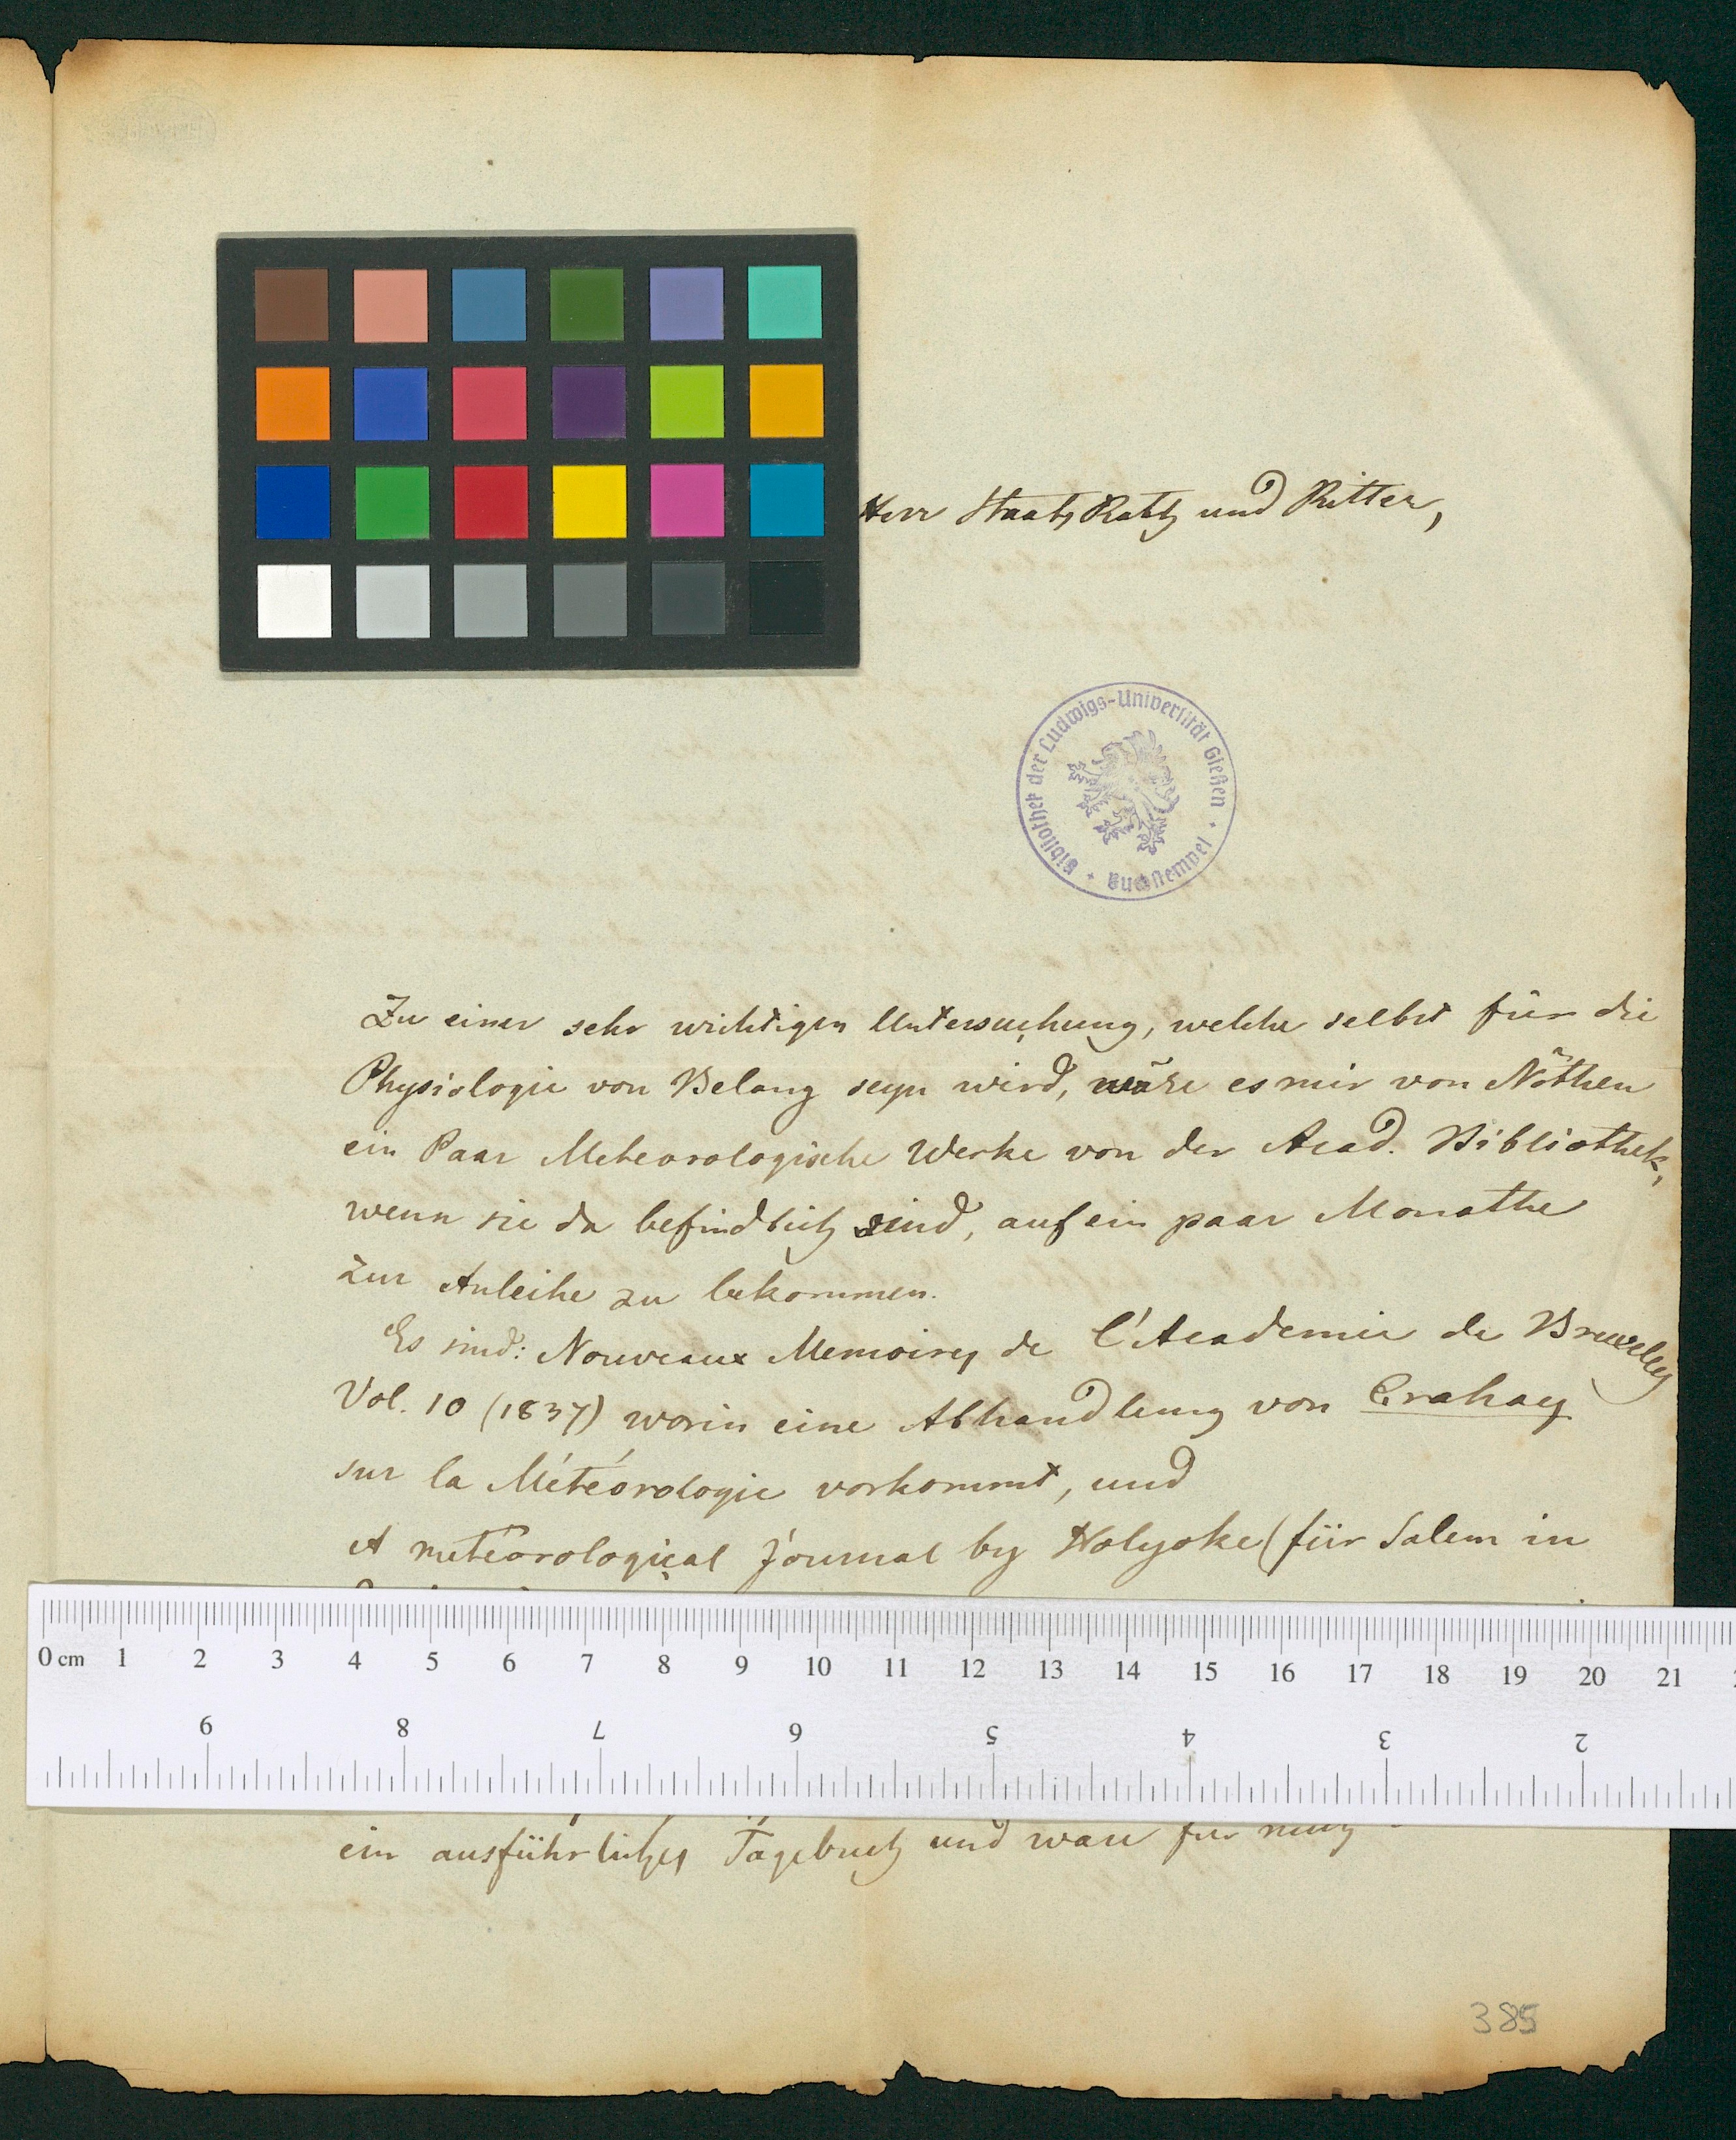 Herr Staats Rath und Ritter,
Bibliothek der Ludwigs-Universität Gießen
Buchstempel
Zu einer sehr wichtigen Untersuchung, welche selbst für die
Physiologie von Belang seyn wird, wäre es mir von Nöthen
ein Paar Meteorologische Werke von der Acad. Bibliothek,
wenn sie da befindlich sind, auf ein paar Monathe
zur Anleihe zu bekommen.
Es sind: Nouveaux Memoires de l'Academie de Bruxelles
Vol. 10 (1837) worin eine Abhandlung von Crahay
sur la Météorologie vorkommt, und
A meteorological Journal by Holyoke (für Salem in
0 cm 1 2 3 4 5 6 7 8 9 10 11 12 13 14 15 16 17 18 19 20 21
9 8 7 6 5 4 3 2
ein ausführliches Tagebuch und wäre für mich
385